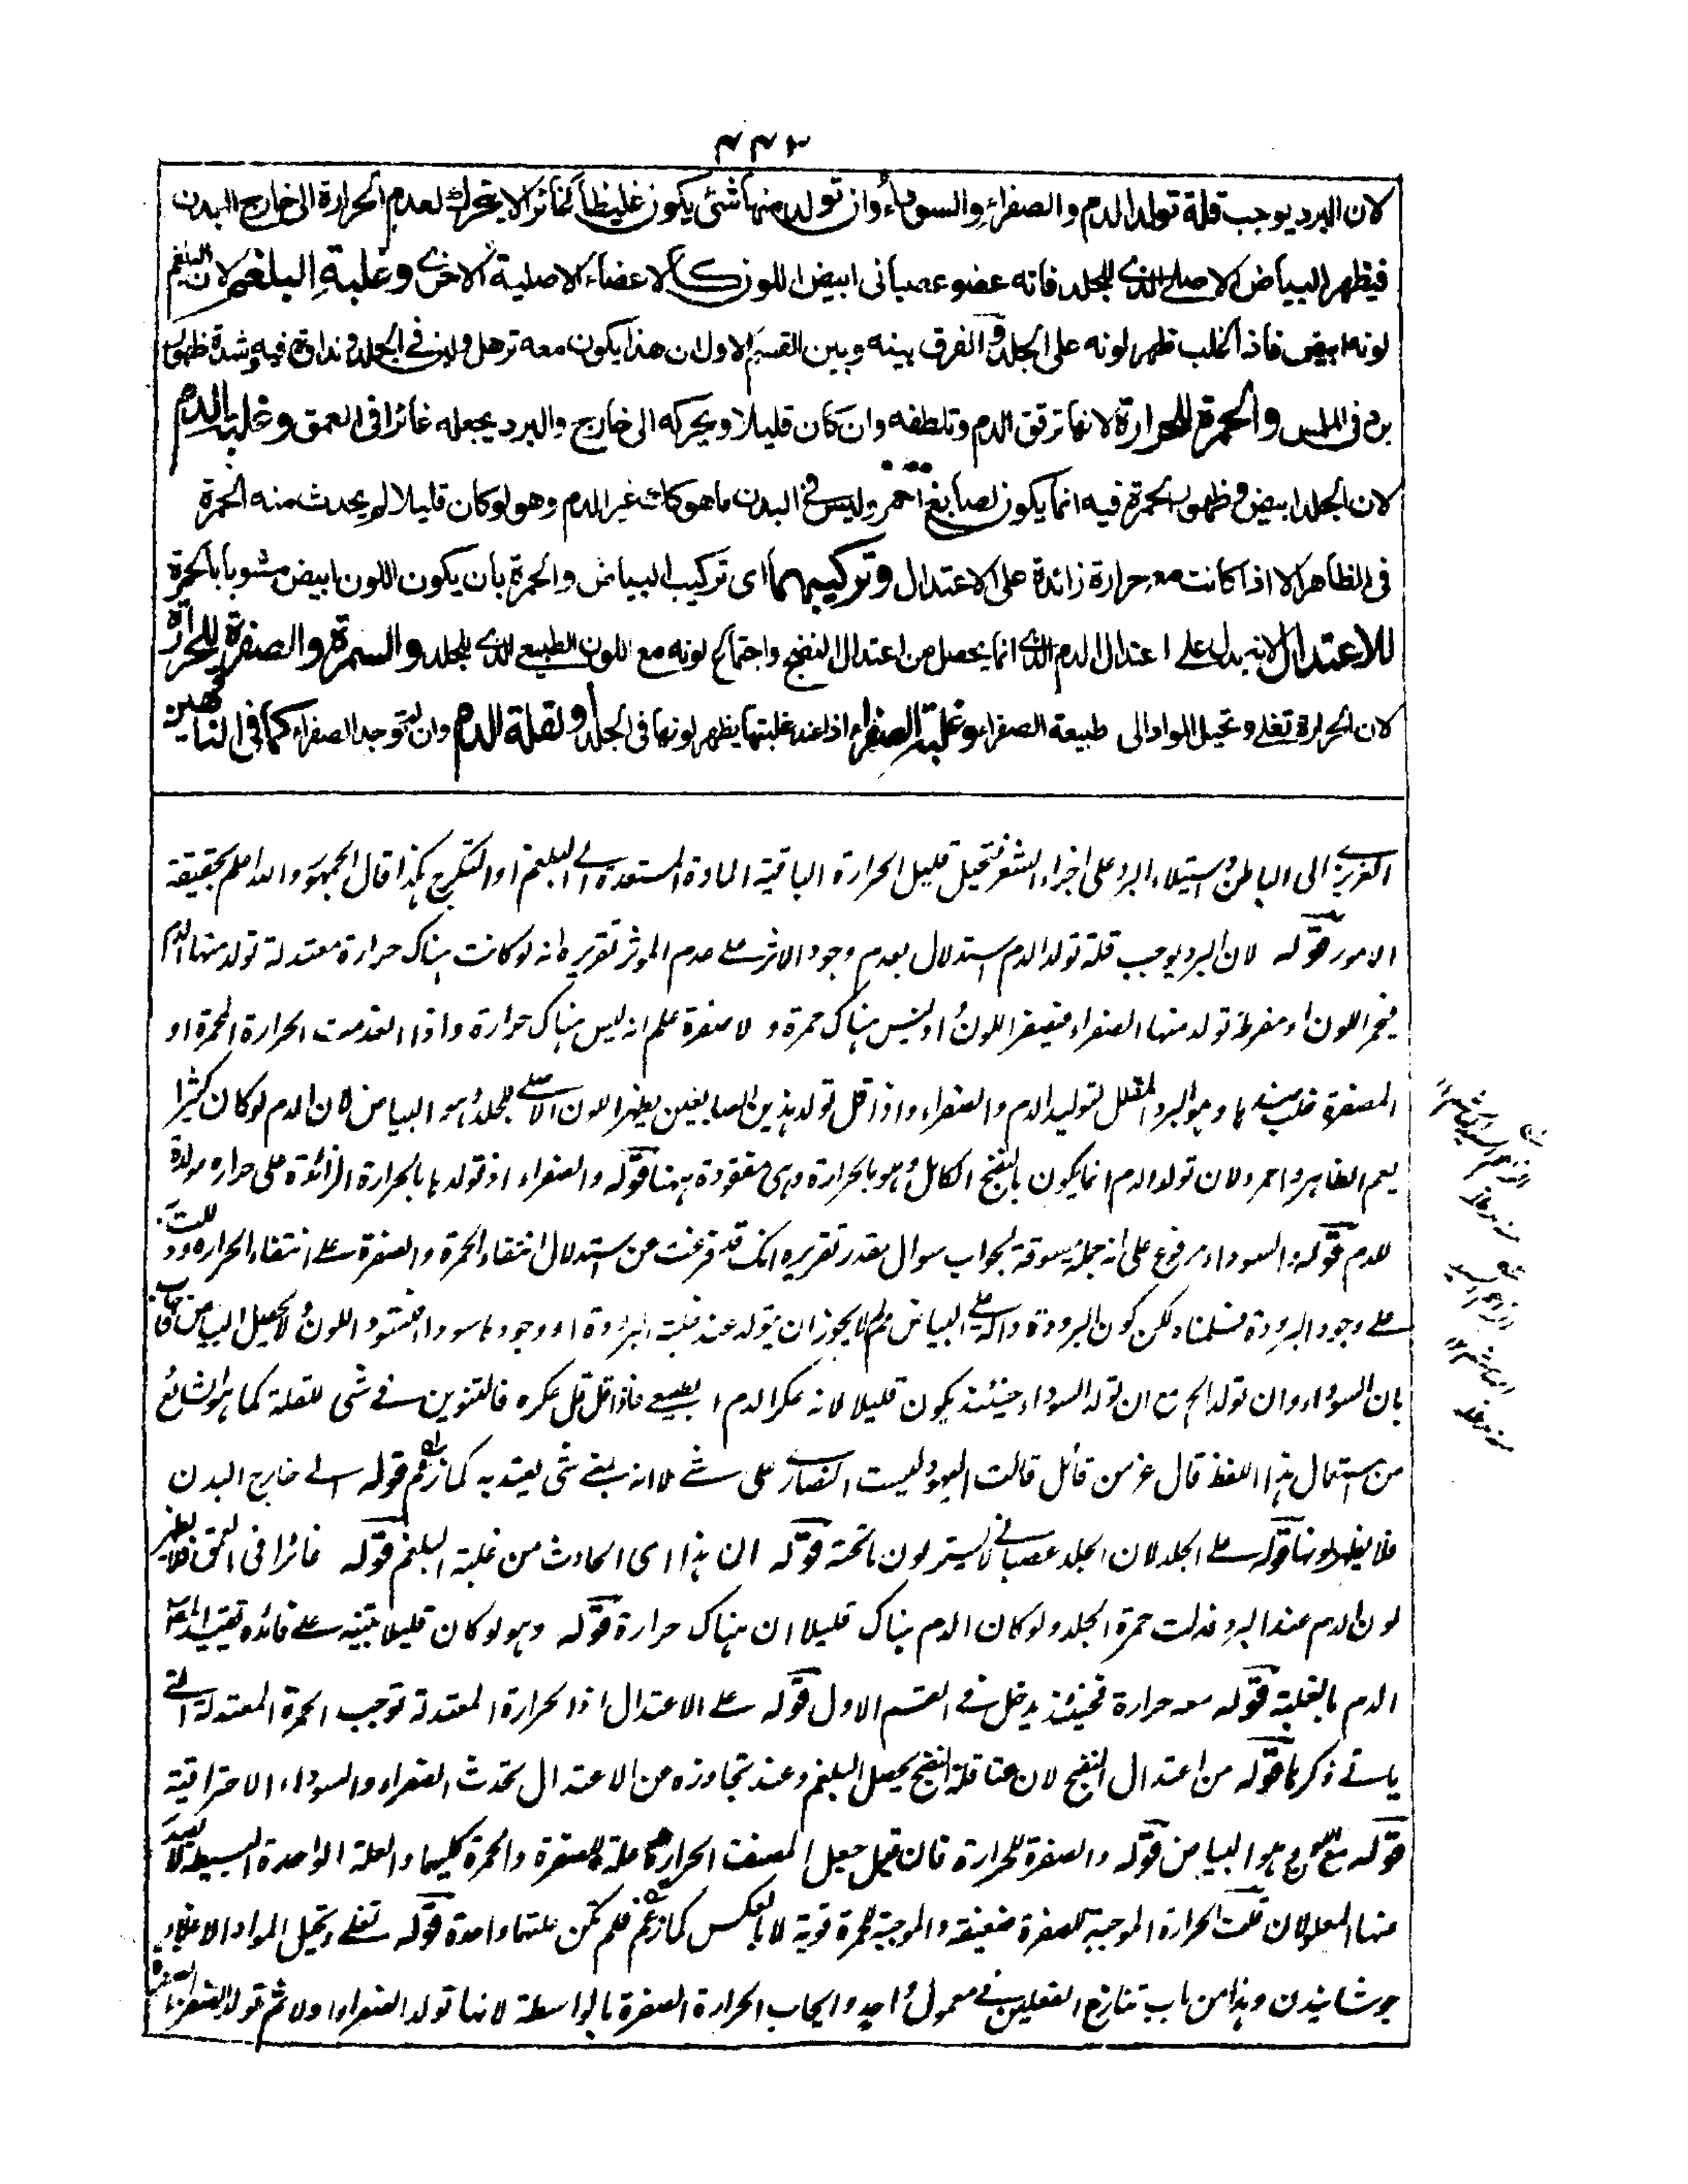 ۴۴۳
لان البرد يوجب قلة تولد الدم والصفراء والسوداء وان تولد منها شئ يكون غليظا غائرا لا يتحرك لعدم الحرارة الى خارج البدن
فيظهر البياض الاصلى الذى للجلد فانه عضو عصبانى ابيض اللون كالاعضاء الاصلية الاخرى وغلبة البلغم لان البلغم
لونه ابيض فاذا غلب ظهر لونه على الجلد والفرق بينه وبين القسم الاول ان هذا يكون معه ترهل ولين فى الجلد ونداوة فيه وشدة ظهور
برد فى الملمس والحمرة للحرارة لانها ترقق الدم وتلطفه وان كان قليلا ويحركه الى خارج والبرد يجعله غائرا فى العمق وغلبة الدم
لان الجلد ابيض وظهور الحمرة فيه انما يكون لصابغ احمر وليس فى البدن ما هو كذلك غير الدم وهو لو كان قليلا لم يحدث منه الحمرة
فى الظاهر الا اذا كانت معه حرارة زائدة على الاعتدال وتركيبهما اى تركيب البياض والحمرة بان يكون اللون ابيض مشوبا بالحمرة
للاعتدال لانه يدل على اعتدال الدم الذى انما يحصل من اعتدال النضج واجتماع لونه مع اللون الطبيعى الذى للجلد والسمرة والصفرة للحرارة
لان الحرارة تغلى وتحيل المواد الى طبيعة الصفراء وغلبة الصفراء اذ عند غلبتها يظهر لونها فى الجلد ولقلة الدم وان لم توجد الصفراء كما فى الناقهين
الغريزى الى الباطن واستيلاء البرد على اجزاء الشعر فتحيل قليل الحرارة الباقية المادة المستعدة الى البلغم او التكرج هكذا قال الجمهور والله اعلم بحقيقة
الامور قوله لان البرد يوجب قلة تولد الدم استدلال بعدم وجود الاثر على عدم الموثر تقريره انه لو كانت هناك حرارة معتدلة تولد منها الدم
فيحمر اللون او مفرطة تولد منها الصفراء فيصفر اللون واذ ليس هناك حمرة ولا صفرة علم انه ليس هناك حرارة واذا انعدمت الحرارة المحمرة او
المصفرة غلب ضدها وهو البرد المقلل لتوليد الدم والصفراء واذا قل تولد هذين الصابغين يظهر اللون الاصلى للجلد وهو البياض لان الدم لو كان كثيرا
يعم الظاهر واحمر ولان تولد الدم انما يكون بالنضج الكامل وهو بالحرارة وهى مفقودة ههنا قوله والصفراء اذ تولدها بالحرارة الزائدة على حرارة مولدة
للدم قوله والسوداء مرفوع على انه جملة مسوقة لجواب سوال مقدر تقريره انك قد فرغت عن استدلال انتفاء الحمرة والصفرة على انتفاء الحرارة
على وجود البرودة فسلمناه لكن كون البرودة دالة على البياض لم لا يجوز ان يتولد عند غلبة البرودة او وجودها سوداء فتسود اللون ولا يحصل البياض فاجاب
بان السوداء وان تولد الخ مع ان تولد السوداء حينئذ يكون قليلا لانه عكر الدم الطبيعى فاذا قل قل عكره فالتنوين فى شئ للقلة كما هو الشائع
من استعمال هذا اللفظ قال عز من قائل قالت اليهود ليست النصارى على شئ لا انه بمعنى شئ يعتد به كما زعم قوله الى خارج البدن
فلا يظهر لونها قوله على الجلد لان الجلد عصبانى لا يستر لون ما تحته قوله ان هذا اى الحادث من غلبة البلغم قوله غائرا فى العمق فلا يظهر
لون الدم عند البرد فدلت حمرة الجلد ولو كان الدم هناك قليلا ان هناك حرارة قوله وهو لو كان قليلا تنبيه على فائدة تقييد
الدم بالغلبة قوله معه حرارة فحينئذ يدخل فى القسم الاول قوله على الاعتدال اذ الحرارة المعتدلة توجب الحمرة المعتدلة التى
ياتى ذكرها قوله من اعتدال النضج لان عند قلة النضج يحصل البلغم وعند تجاوزه من الاعتدال تحدث الصفراء والسوداء الاحتراقية
قوله مع اللون هو البياض قوله والصفرة للحرارة فان قيل جعل المصنف الحرارة علة للصفرة والحمرة كليهما والعلة الواحدة البسيطة لا تصدر
منها المعلولان قلت الحرارة الموجبة للصفرة ضعيفة والموجبة للحمرة قوية لا بالعكس كما زعم فلم تكن علتهما واحدة قوله تغلى وتحيل المواد الاغلاء
جوشانيدن وهذا من باب تنازع الفعلين فى معمول واحد وايجاب الحرارة الصفرة بالواسطة لانها تولد الصفراء اولا ثم تولد الصفراء